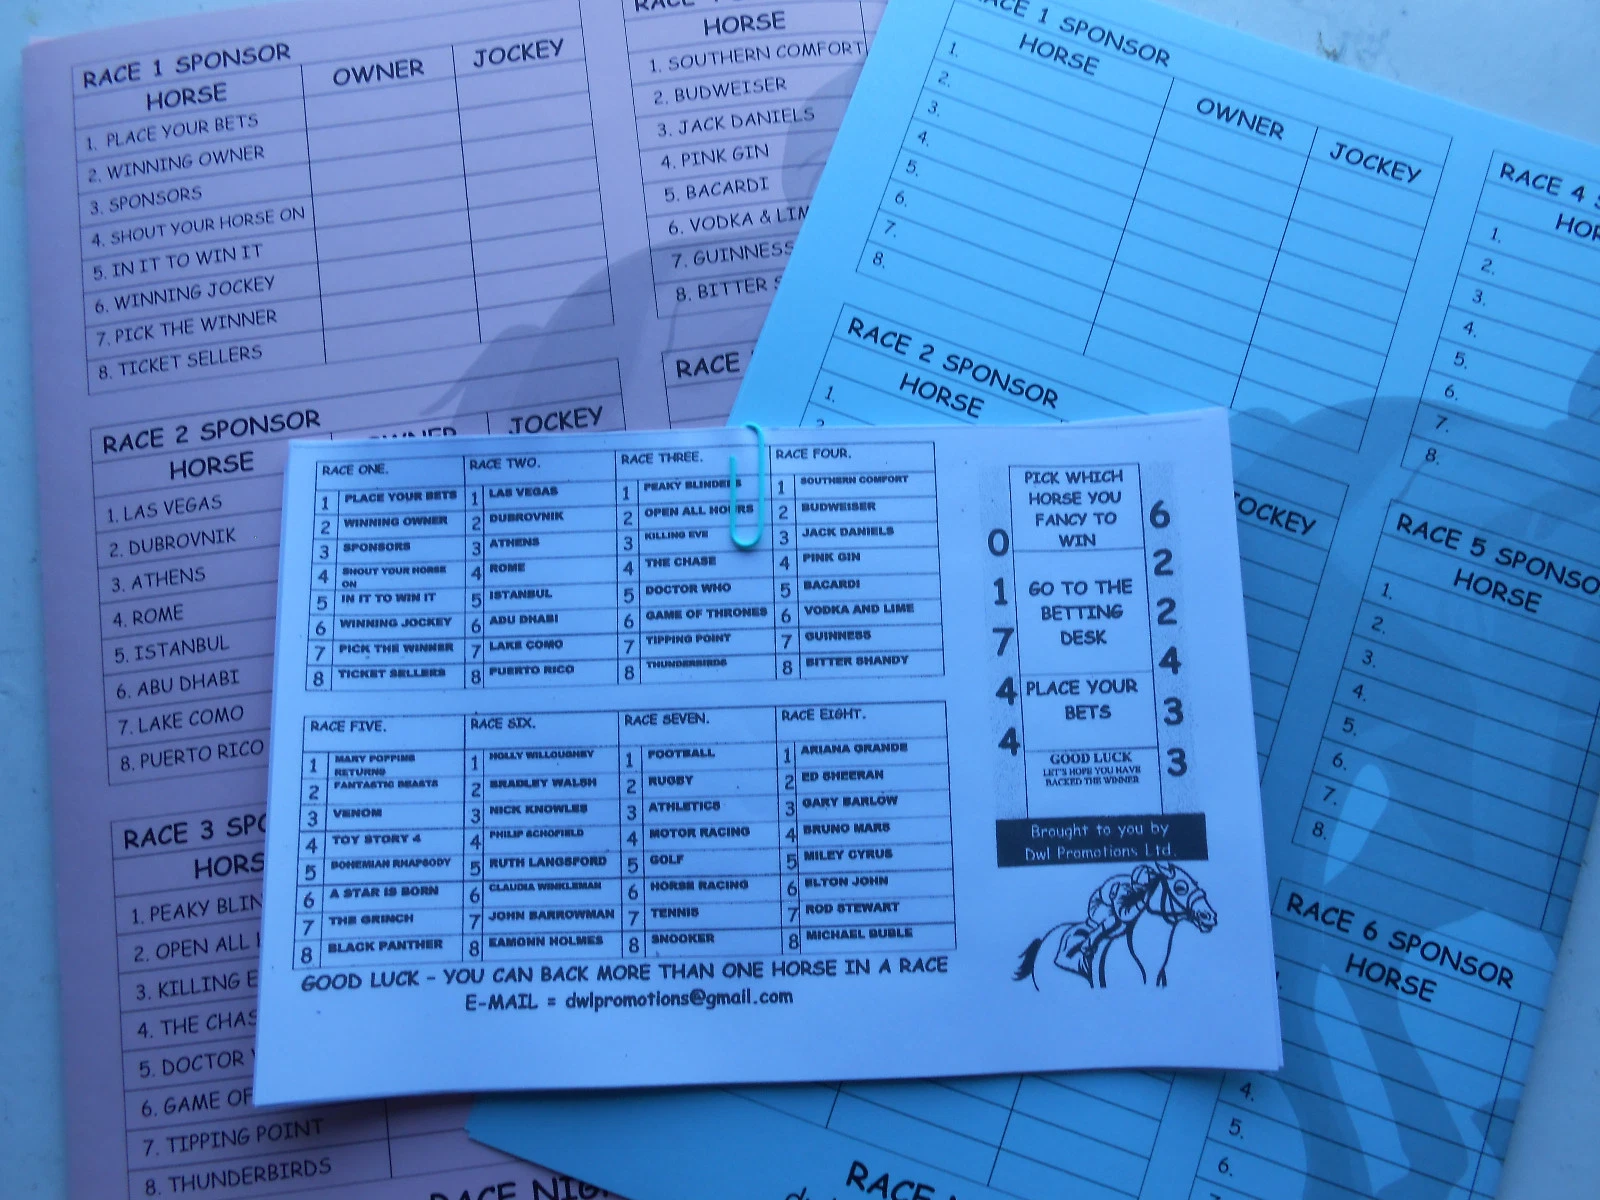 RACE 1 SPONSOR
HORSE OWNER JOCKEY
1. PLACE YOUR BETS
2. WINNING OWNER
3. SPONSORS
4. SHOUT YOUR HORSE ON
5. IN IT TO WIN IT
6. WINNING JOCKEY
7. PICK THE WINNER
8. TICKET SELLERS
RACE 2 SPONSOR
HORSE OWNER JOCKEY
1. LAS VEGAS
2. DUBROVNIK
3. ATHENS
4. ROME
5. ISTANBUL
6. ABU DHABI
7. LAKE COMO
8. PUERTO RICO
RACE 3 SPO
HORS
1. PEAKY BLIN
2. OPEN ALL
3. KILLING E
4. THE CHAS
5. DOCTOR
6. GAME OF
7. TIPPING POINT
8. THUNDERBIRDS
HORSE
1. SOUTHERN COMFORT
2. BUDWEISER
3. JACK DANIELS
4. PINK GIN
5. BACARDI
6. VODKA & LIM
7. GUINNESS
8. BITTER S
RACE
RACE NIG
RACE 1 SPONSOR
HORSE OWNER JOCKEY
1.
2.
3.
4.
5.
6.
7.
8.
RACE 2 SPONSOR
HORSE
1.
2.
OCKEY
RACE 4 S
HOR
1.
2.
3.
4.
5.
6.
7.
8.
RACE 5 SPONSO
HORSE
1.
2.
3.
4.
5.
6.
7.
8.
RACE 6 SPONSOR
HORSE
4.
5.
6.
RACE
RACE ONE.
1 PLACE YOUR BETS
2 WINNING OWNER
3 SPONSORS
4 SHOUT YOUR HORSE
ON
5 IN IT TO WIN IT
6 WINNING JOCKEY
7 PICK THE WINNER
8 TICKET SELLERS
RACE TWO.
1 LAS VEGAS
2 DUBROVNIK
3 ATHENS
4 ROME
5 ISTANBUL
6 ADU DHABI
7 LAKE COMO
8 PUERTO RICO
RACE THREE.
1 PEAKY BLINDERS
2 OPEN ALL HOURS
3 KILLING EVE
4 THE CHASE
5 DOCTOR WHO
6 GAME OF THRONES
7 TIPPING POINT
8 THUNDERBIRDS
RACE FOUR.
1 SOUTHERN COMFORT
2 BUDWEISER
3 JACK DANIELS
4 PINK GIN
5 BACARDI
6 VODKA AND LIME
7 GUINNESS
8 BITTER SHANDY
RACE FIVE.
1 MARY POPPINS
RETURNS
2 FANTASTIC BEASTS
3 VENOM
4 TOY STORY 4
5 BOHEMIAN RHAPSODY
6 A STAR IS BORN
7 THE GRINCH
8 BLACK PANTHER
RACE SIX.
1 HOLLY WILLOUGHBY
2 BRADLEY WALSH
3 NICK KNOWLES
4 PHILIP SCHOFIELD
5 RUTH LANGSFORD
6 CLAUDIA WINKLEMAN
7 JOHN BARROWMAN
8 EAMONN HOLMES
RACE SEVEN.
1 FOOTBALL
2 RUGBY
3 ATHLETICS
4 MOTOR RACING
5 GOLF
6 HORSE RACING
7 TENNIS
8 SNOOKER
RACE EIGHT.
1 ARIANA GRANDE
2 ED SHEERAN
3 GARY BARLOW
4 BRUNO MARS
5 MILEY CYRUS
6 ELTON JOHN
7 ROD STEWART
8 MICHAEL BUBLE
GOOD LUCK - YOU CAN BACK MORE THAN ONE HORSE IN A RACE
E-MAIL = dwlpromotions@gmail.com
0
1
7
4
4
PICK WHICH
HORSE YOU
FANCY TO
WIN
GO TO THE
BETTING
DESK
PLACE YOUR
BETS
GOOD LUCK
LET'S HOPE YOU HAVE
BACKED THE WINNER
6
2
2
4
3
3
Brought to you by
Dwl Promotions Ltd.